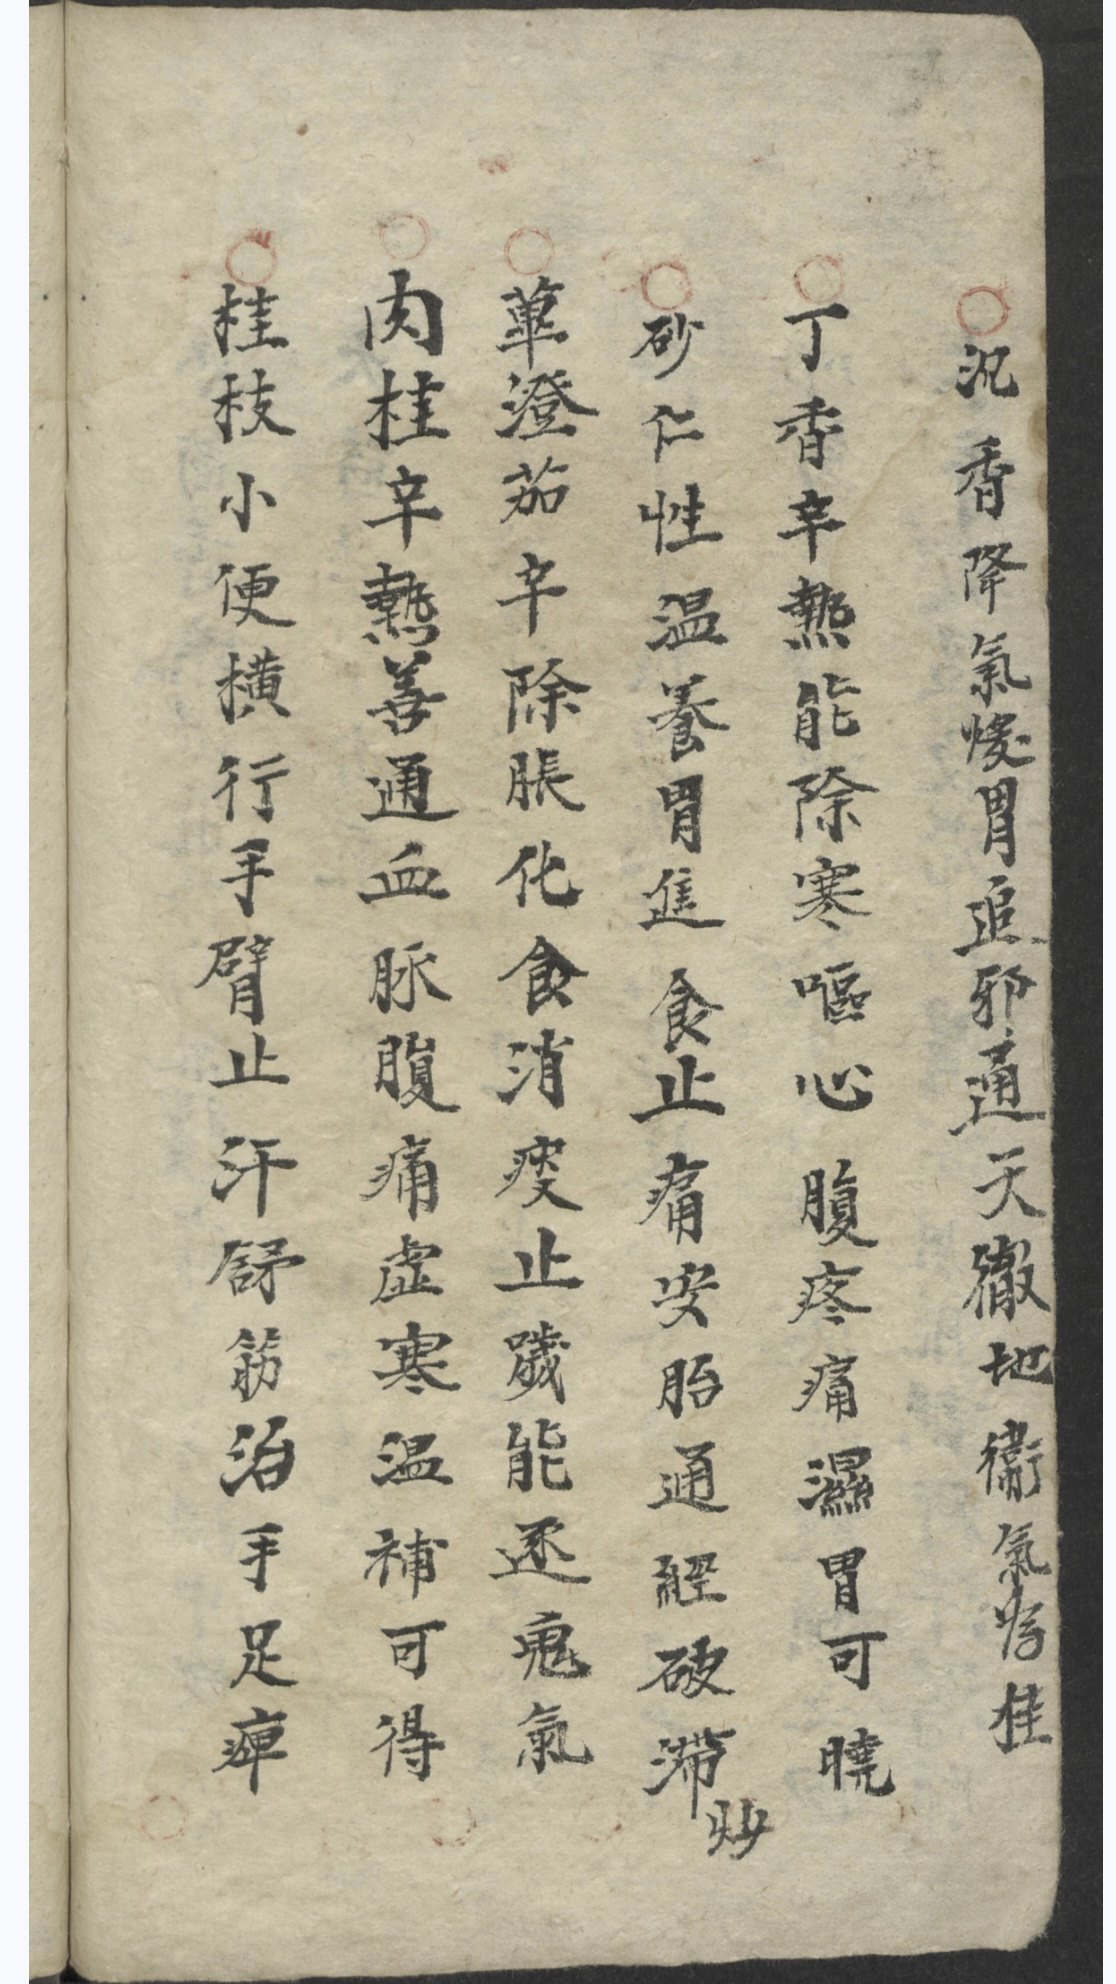 沉香降氣煖胃追邪通天徹地衛氣存桂
丁香辛熱能除寒嘔心腹疼痛濕胃可曉
砂仁性温養胃進食止痛安胎通經破滯炒
蓽澄茄辛除脹化食消痰止噦能逐鬼氣
肉桂辛熱善通血脉腹痛虛寒温補可得
桂枝小便橫行手臂止汗舒筋治手足痺